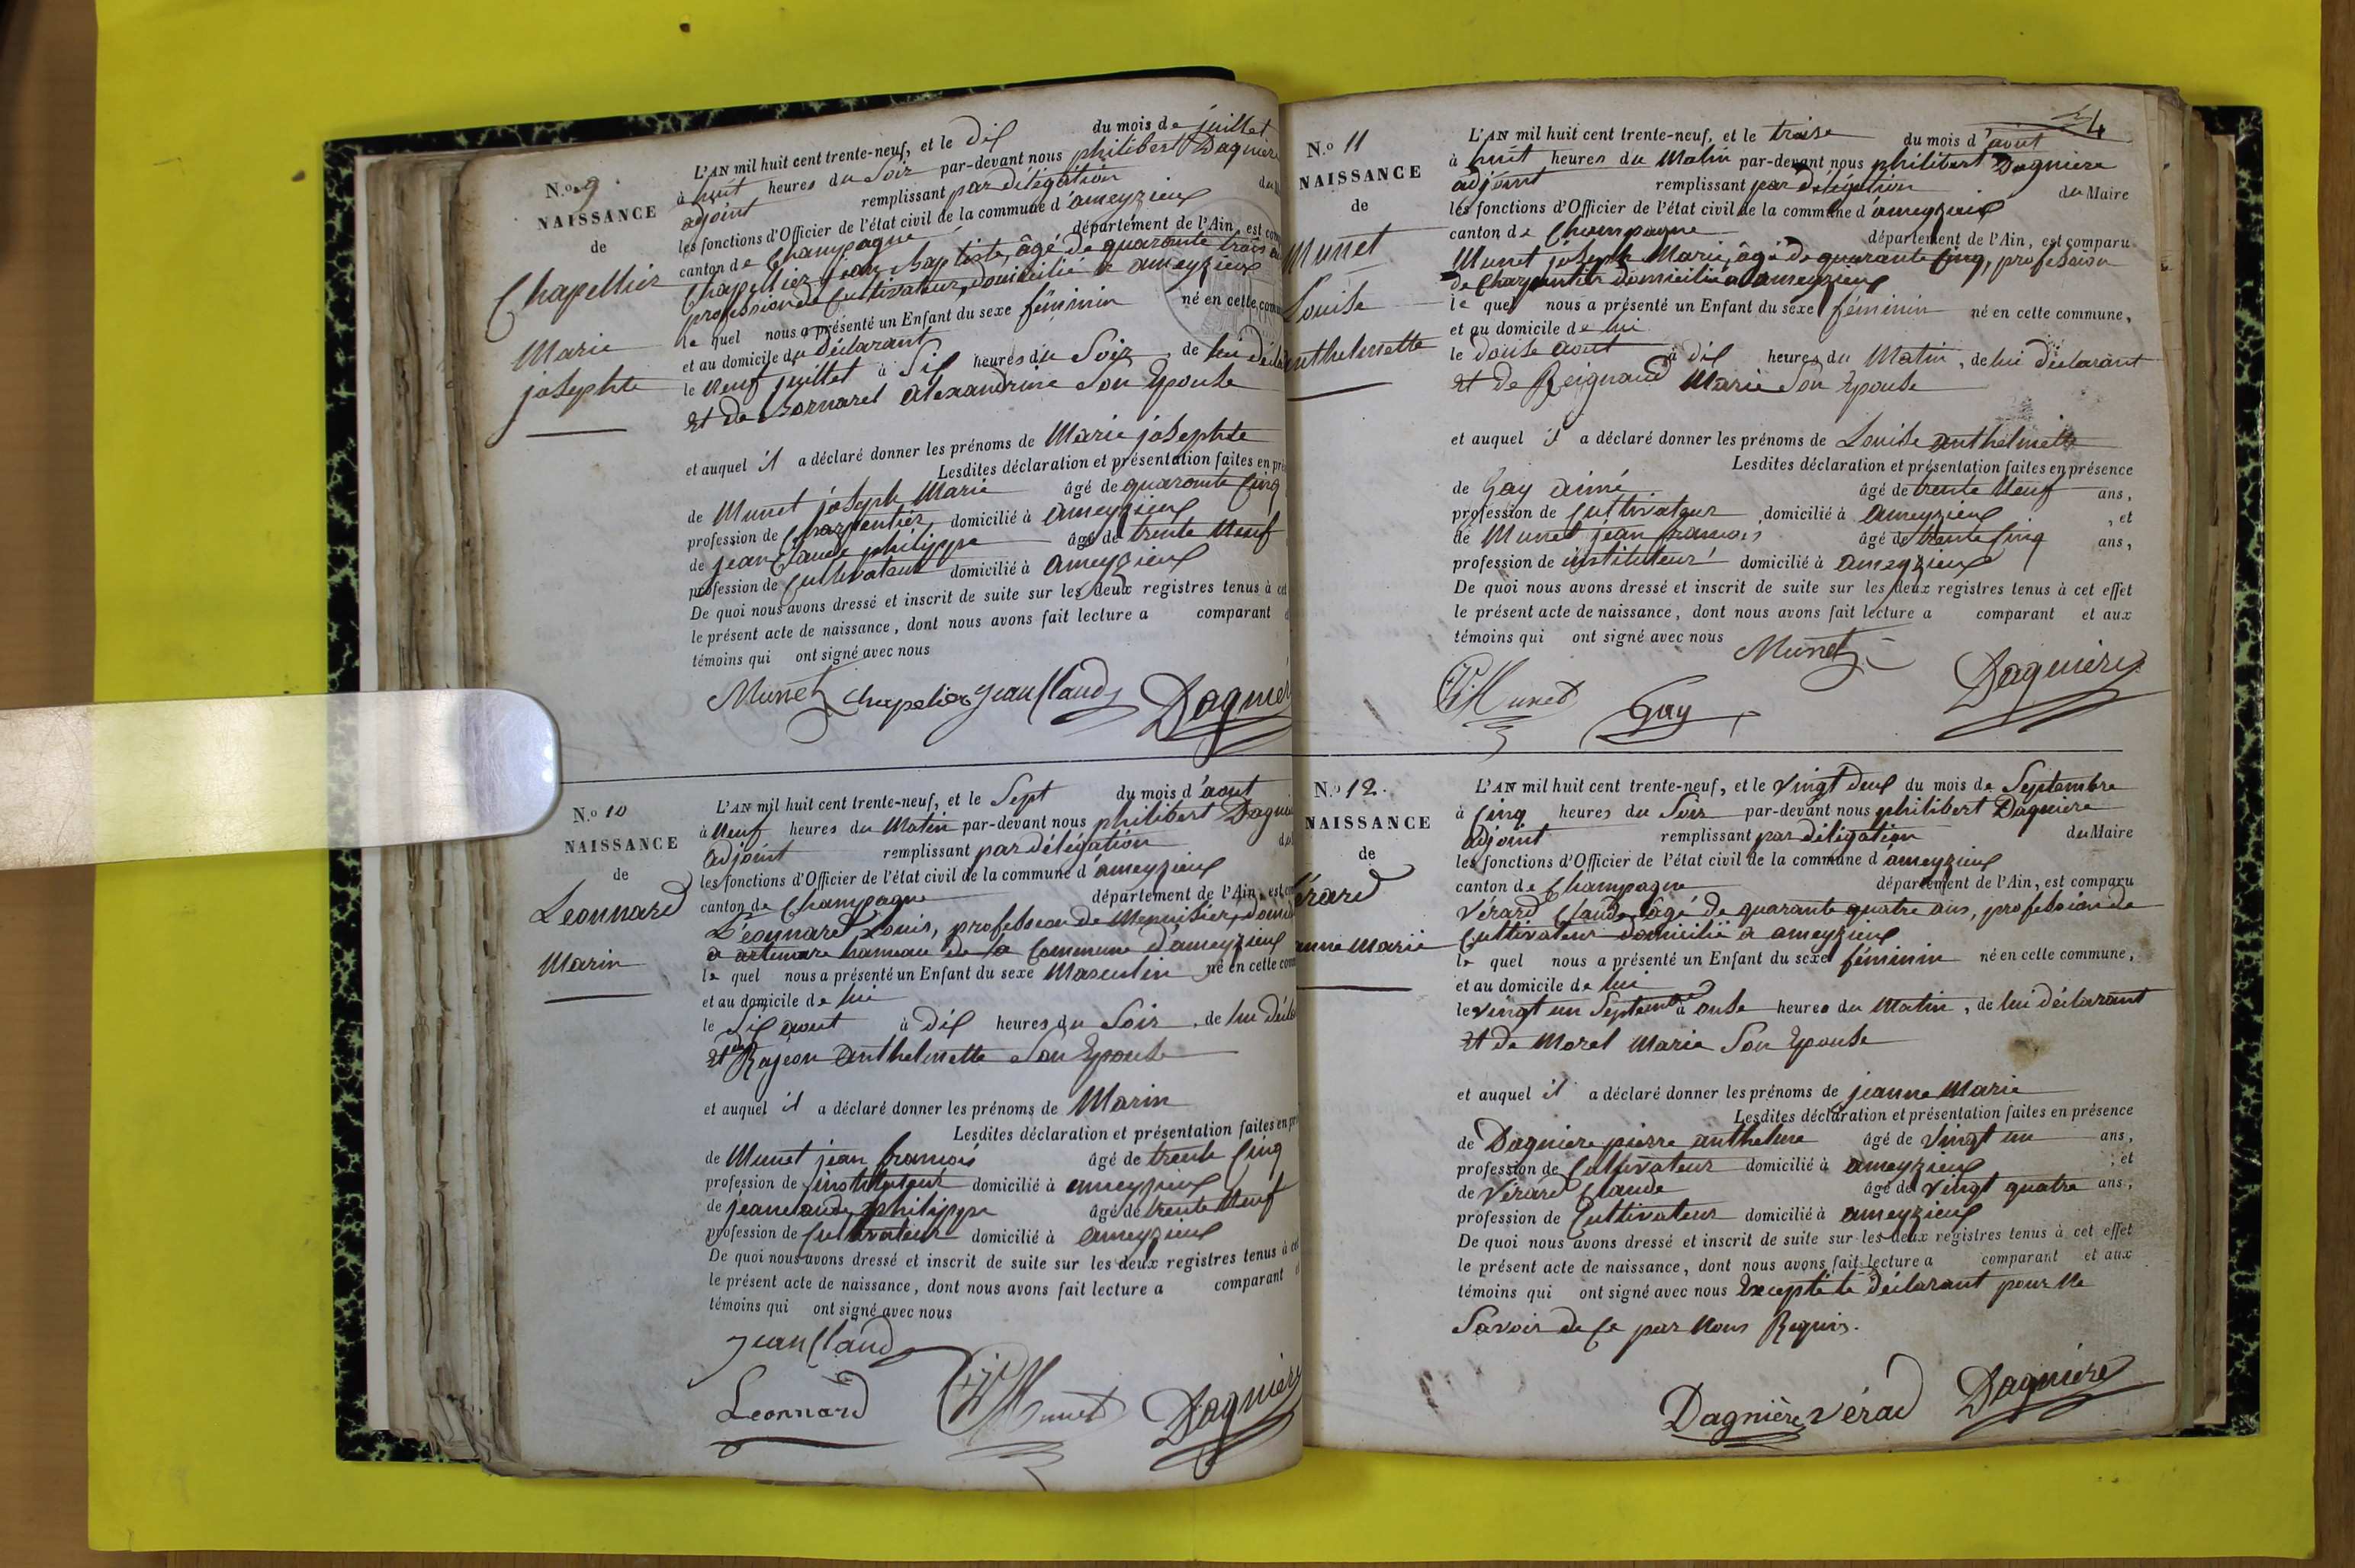 N.o 9
NAISSANCE
de
Chapellier
Marie
josephte
L'AN mil huit cent trente-neuf, et le dix du mois de juillet
à huit heures du Soir par-devant nous philibert Dagniere
adjoint remplissant par délégation du
les fonctions d'Officier de l'état civil de la commune d'ameyzieux
canton de Champagne département de l'Ain, est
Chapellier jean baptiste, âgé de quarante trois
profession de Cultivateur, domicilié à ameyzieux
le quel nous a présenté un Enfant du sexe féminin né en cette
et au domicile du Déclarant
le Neuf juillet à Six heures du Soir, de lui
et de Bornarel Alexandrine Son Epouse
et auquel il a déclaré donner les prénoms de Marie josephte
Lesdites déclaration et présentation faites en
de Munet joseph Marie âgé de quarante Cinq
profession de Charpentier, domicilié à ameyzieux
de jean Claude philippe âgé de trente Neuf
profession de Cultivateur domicilié à ameyzieux
De quoi nous avons dressé et inscrit de suite sur les deux registres tenus à
le présent acte de naissance, dont nous avons fait lecture a comparant
témoins qui ont signé avec nous
Munet Chapelier jean Claud Dagnier
N.o 10
NAISSANCE
de
Leonnard
Marin
L'AN mil huit cent trente-neuf, et le Sept du mois d'aout
à Neuf heures du Matin par-devant nous philibert
adjoint remplissant par délégation
les fonctions d'Officier de l'état civil de la commune d'ameyzieux
canton de Champagne département de l'Ain, est
Léonnard Louis, profession de Menuisier,
à artemare hameau de la Commune d'ameyzieux
le quel nous a présenté un Enfant du sexe Masculin né en cette
et au domicile de lui
le Six aout à dix heures du Soir, de lui
et de Rajeon anthelmette Son Epouse
et auquel il a déclaré donner les prénoms de Marin
Lesdites déclaration et présentation faites en
de Munet jean francois âgé de trente Cinq
profession de instituteur domicilié à ameyzieux
de jeanclaude philippe âgé de trente Neuf
profession de Cultivateur domicilié à ameyzieux
De quoi nous avons dressé et inscrit de suite sur les deux registres tenus à
le présent acte de naissance, dont nous avons fait lecture a comparant
témoins qui ont signé avec nous
jean Claud
Leonnard Munet Dagniere
4
N.o 11
NAISSANCE
de
Munet
Louise
anthelmette
L'AN mil huit cent trente-neuf, et le treise du mois d'aout
à huit heures du Matin par-devant nous philibert Dagniere
adjoint remplissant par délégation du Maire
les fonctions d'Officier de l'état civil de la commune d'ameyzieux
canton de Champagne département de l'Ain, est comparu
Munet joseph Marie, âgé de quarante Cinq, profession
de Charpentier domicilié à ameyzieux
le quel nous a présenté un Enfant du sexe féminin né en cette commune,
et au domicile de lui
le douse aout à dix heures du Matin, de lui déclarant
et de Reignaud Marie Son Epouse
et auquel il a déclaré donner les prénoms de Louise anthelmette
Lesdites déclaration et présentation faites en présence
de Gay aimé âgé de trente Neuf ans,
profession de Cultivateur domicilié à ameyzieux, et
de Munet jean francois âgé de trente Cinq ans,
profession de instituteur domicilié à ameyzieux
De quoi nous avons dressé et inscrit de suite sur les deux registres tenus à cet effet
le présent acte de naissance, dont nous avons fait lecture a comparant et aux
témoins qui ont signé avec nous Munet
Munet Gay Dagniere
N.o 12.
NAISSANCE
de
érard
anne Marie
L'AN mil huit cent trente-neuf, et le Vingt deux du mois de Septembre
à Cinq heures du Soir par-devant nous philibert Dagniere
adjoint remplissant par délégation du Maire
les fonctions d'Officier de l'état civil de la commune d'ameyzieux
canton de Champagne département de l'Ain, est comparu
Vérard Claude âgé de quarante quatre ans, profession de
Cultivateur domicilié à ameyzieux
le quel nous a présenté un Enfant du sexe féminin né en cette commune,
et au domicile de lui
le vingt un Septembre à onse heures du Matin, de lui déclarant
et de Morel Marie Son Epouse
et auquel il a déclaré donner les prénoms de jeanne Marie
Lesdites déclaration et présentation faites en présence
de Dagniere pierre anthelme âgé de Vingt un ans,
profession de Cultivateur domicilié à ameyzieux; et
de Vérard Claude âgé de vingt quatre ans,
profession de Cultivateur domicilié à ameyzieux
De quoi nous avons dressé et inscrit de suite sur les deux registres tenus à cet effet
le présent acte de naissance, dont nous avons fait lecture a comparant et aux
témoins qui ont signé avec nous Excepté le déclarant pour ne
Savoir de Ce par Nous Requis.
Dagnière vérad Dagniere